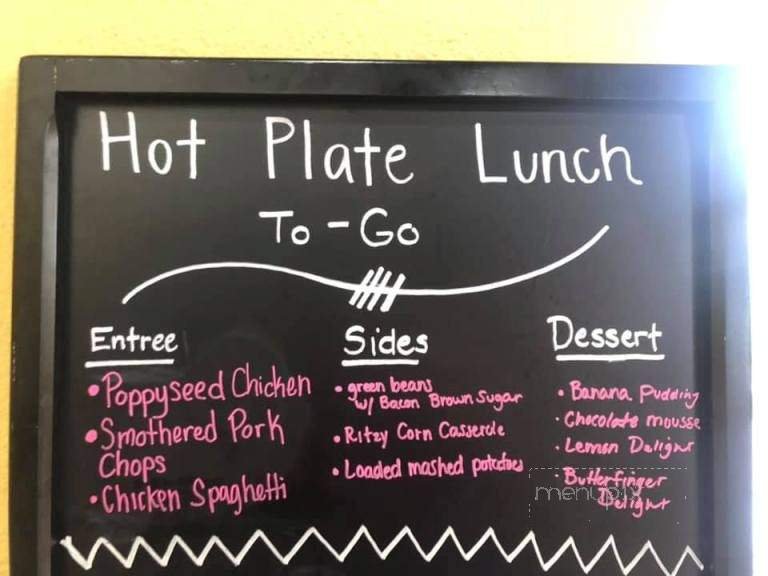 Hot Plate Lunch
To-Go
Entree
•Poppyseed Chicken
•Smothered Pork
Chops
•Chicken Spaghetti
Sides
•green beans
w/ Bacon Brown Sugar
•Ritzy Corn Casserole
•Loaded mashed potatoes
Dessert
•Banana Pudding
•Chocolate mousse
•Lemon Delight
•Butterfinger
Delight
menupix